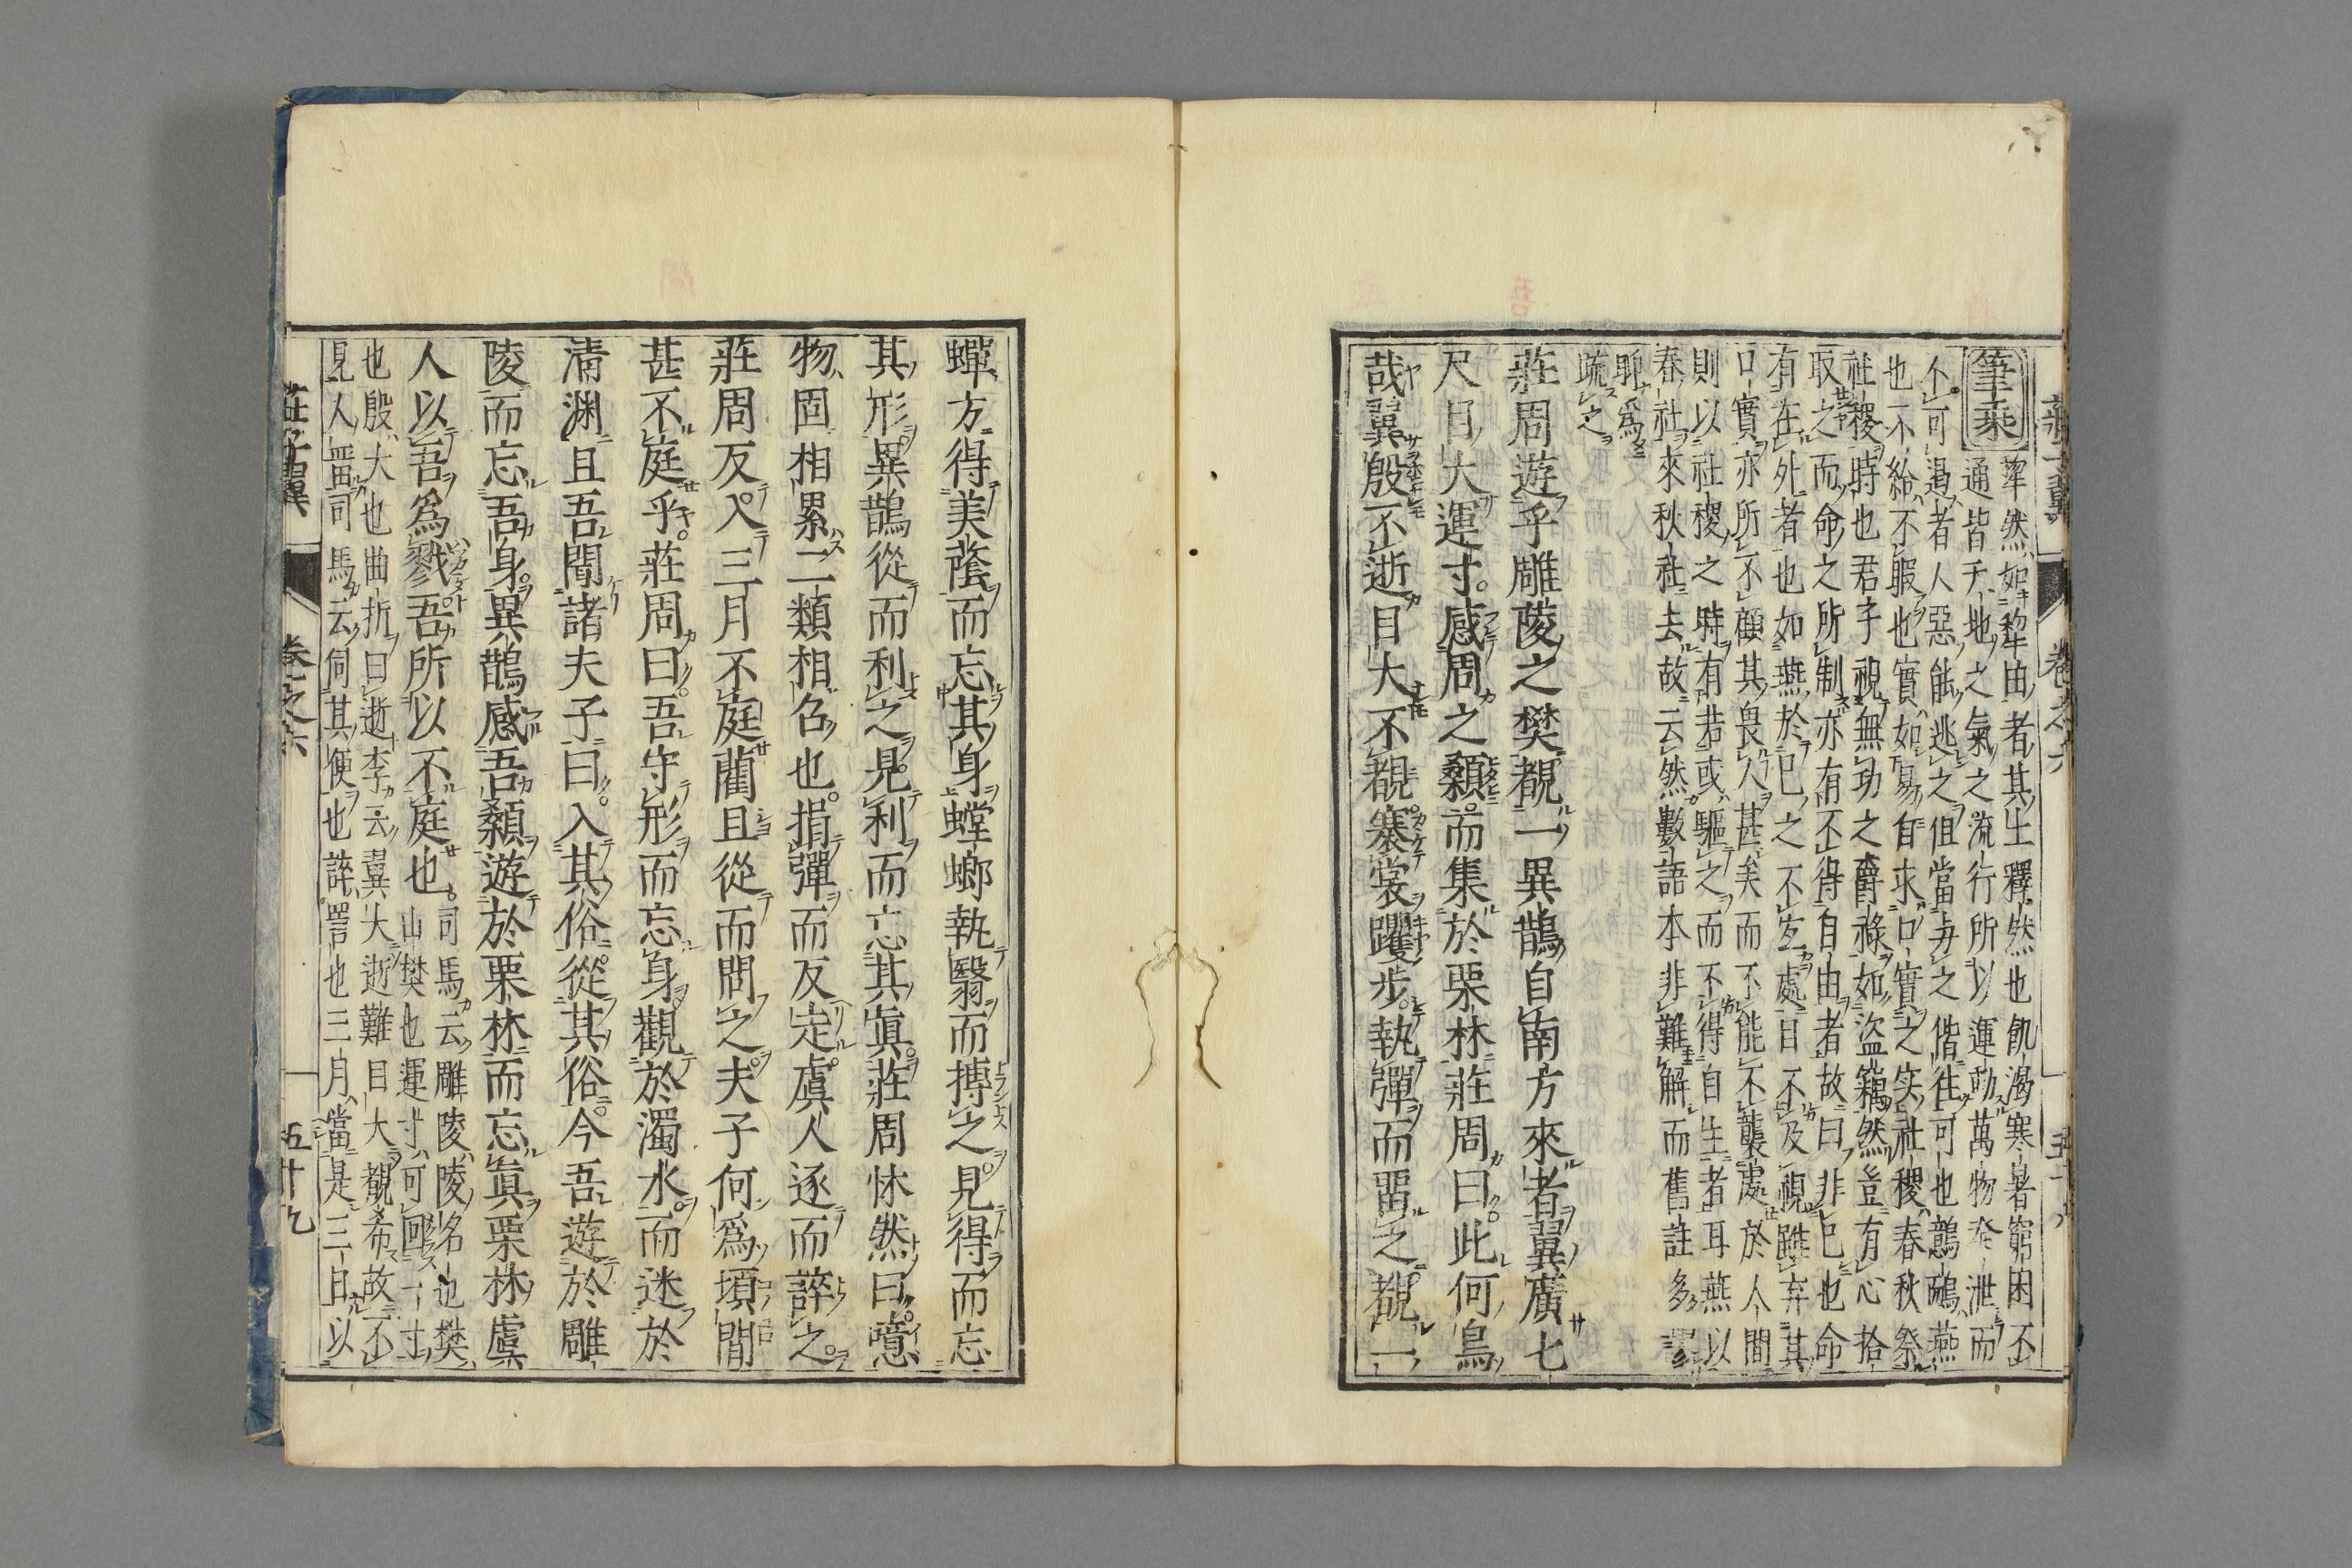 莊子翼 卷之六
筆乘
犂然如犂由者其土釋然也飢渴寒暑窮困不
通皆天地之氣之流行所以運動萬物發泄而
不可遏者人惡能逃之但當與之偕往可也鷾鴯燕
也不給不暇也實如易自求口實之实社稷春秋祭
社稷時也君子視無功之爵祿如盗竊然豈有心拾
取之而命之所制亦有不得自由者故曰非己也命
有在外者也如燕於己之不宜處目不及視雖弃其
口實亦所不顧其畏人甚矣而不能不襲處於人間
則以社稷之時有若或驅之而不得自生者耳燕以
春社來秋社去故云然數語本非難解而舊註多
聊爲
疏之
莊周遊乎雕陵之樊覩一異鵲自南方來者翼廣七
尺目大運寸感周之顙而集於栗林莊周曰此何鳥
哉翼殷不逝目大不覩褰裳躩步執彈而畱之覩一
蟬方得美蔭而忘其身螳螂執翳而搏之見得而忘
其形異鵲從而利之見利而忘其眞莊周怵然曰噫
物固相累二類相召也捐彈而反走虞人逐而誶之
莊周反入三月不庭藺且從而問之夫子何爲頃間
甚不庭乎莊周曰吾守形而忘身觀於濁水而迷於
淸渊且吾聞諸夫子曰入其俗從其俗今吾遊於雕
陵而忘吾身異鵲感吾顙遊於栗林而忘眞栗林虞
人以吾爲戮吾所以不庭也
司馬云雕陵陵名也樊
山樊也運寸可回一寸
也殷大也曲折曰逝李云翼大逝難目大覩希故不
見人畱司馬云伺其便也誶詈也三月當是三日以
莊子翼 卷之六 五十九